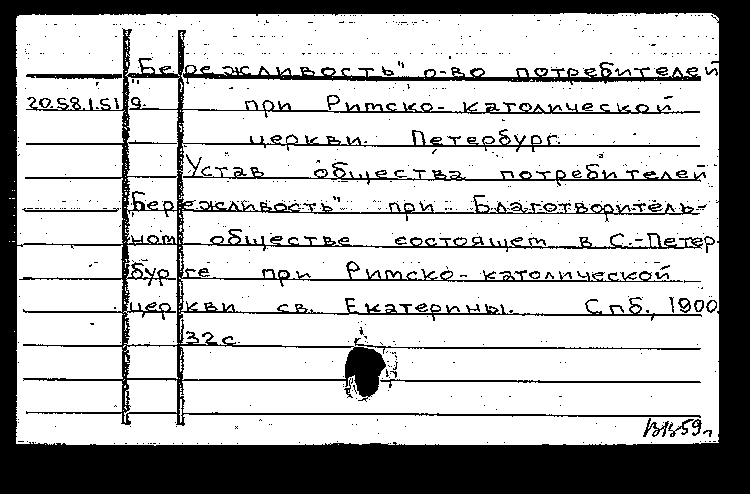 "Бережливость" о-во потребителей
20.58.1.519. при Римско-католической
церкви. Петербург.
Устав общества потребителей
"Бережливость" при Благотворитель-
ном обществе состоящем в С.-Петер-
бурге при Римско-католической
церкви св. Екатерины. Спб., 1900.
32с